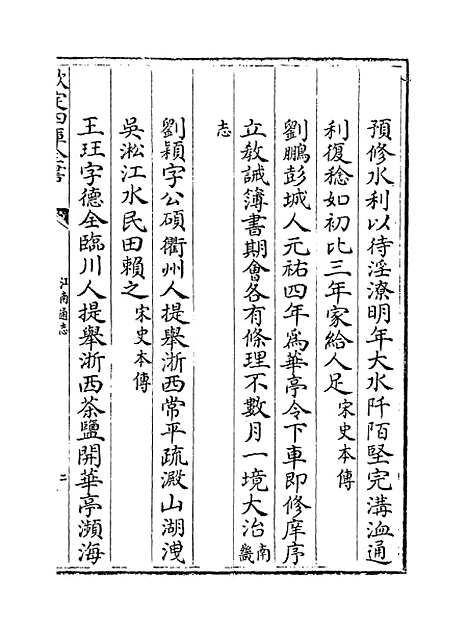 預修水利以待淫潦明年大水阡陌堅完溝洫通
利復稔如初比三年家給人足宋史本傳
劉鵬彭城人元祐四年為華亭令下車即修庠序
立教誡簿書期會各有條理不數月一境大治南畿
志
劉穎字公碩衢州人提舉浙西常平疏澱山湖洩
吳淞江水民田賴之宋史本傳
王玨字德全臨川人提舉浙西茶鹽開華亭瀕海
欽定四庫全書
江南通志
二